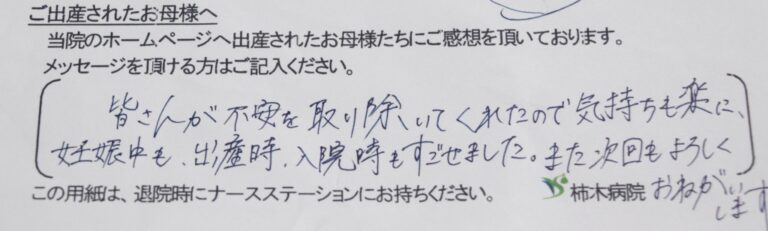 ご出産されたお母様へ
当院のホームページへ出産されたお母様たちにご感想を頂いております。
メッセージを頂ける方はご記入ください。
皆さんが不安を取り除いてくれたので気持ちも楽に、
妊娠中も、出産時、入院時もすごせました。また次回もよろしく
おねがいします
この用紙は、退院時にナースステーションにお持ちください。 柿木病院